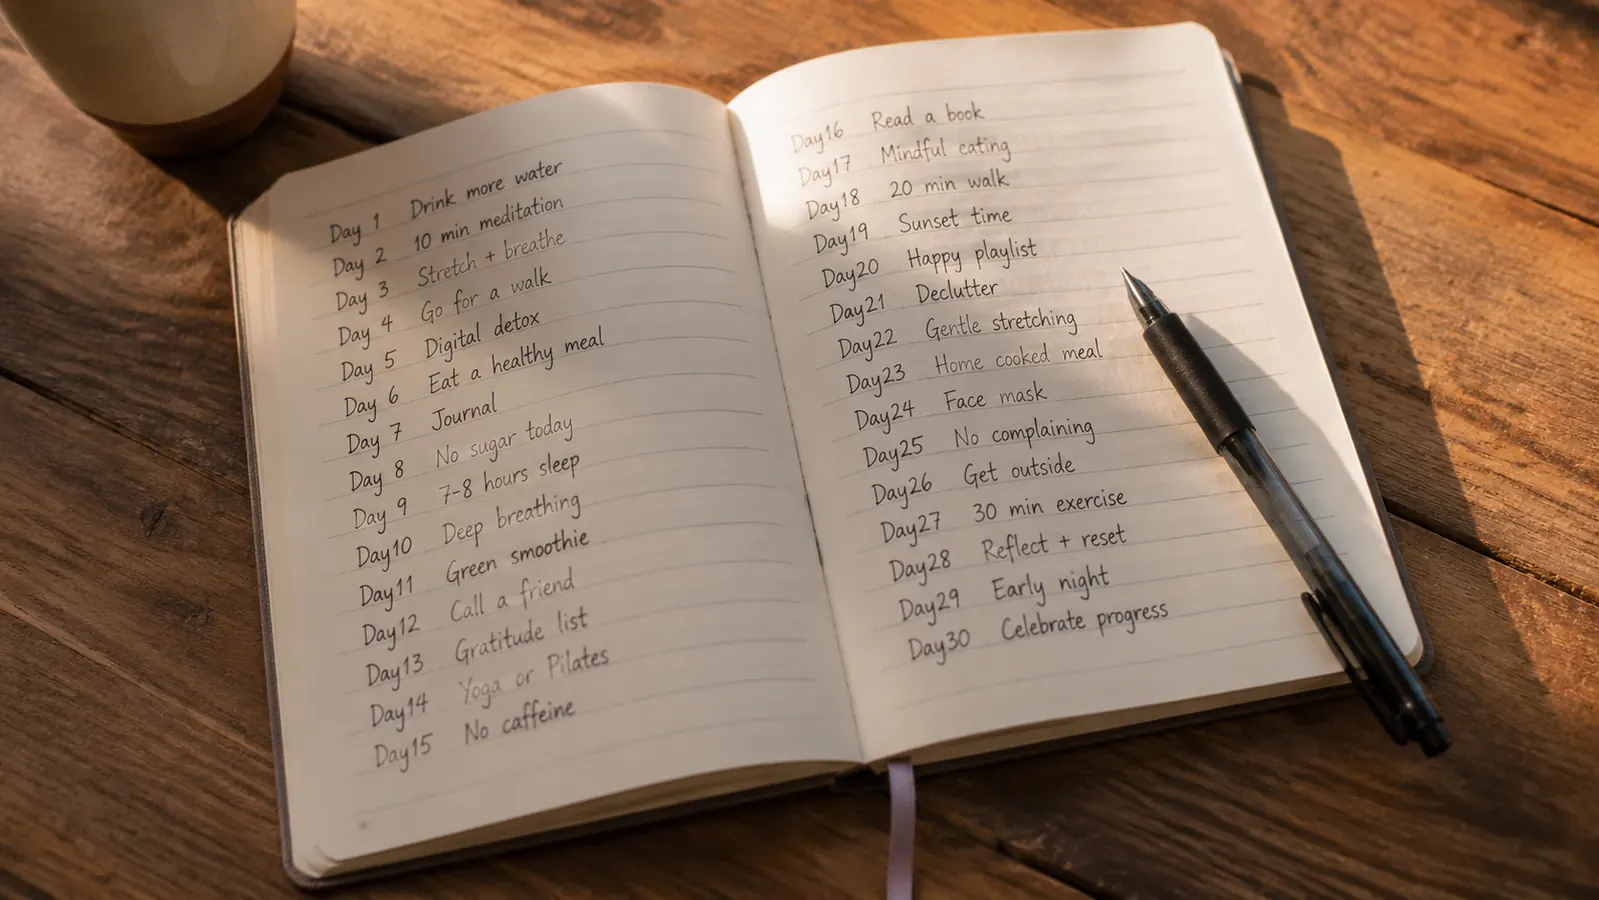 Day 1 Drink more water
Day 2 10 min meditation
Day 3 Stretch + breathe
Day 4 Go for a walk
Day 5 Digital detox
Day 6 Eat a healthy meal
Day 7 Journal
Day 8 No sugar today
Day 9 7-8 hours sleep
Day10 Deep breathing
Day11 Green smoothie
Day12 Call a friend
Day13 Gratitude list
Day14 Yoga or Pilates
Day15 No caffeine
Day16 Read a book
Day17 Mindful eating
Day18 20 min walk
Day19 Sunset time
Day20 Happy playlist
Day21 Declutter
Day22 Gentle stretching
Day23 Home cooked meal
Day24 Face mask
Day25 No complaining
Day26 Get outside
Day27 30 min exercise
Day28 Reflect + reset
Day29 Early night
Day30 Celebrate progress